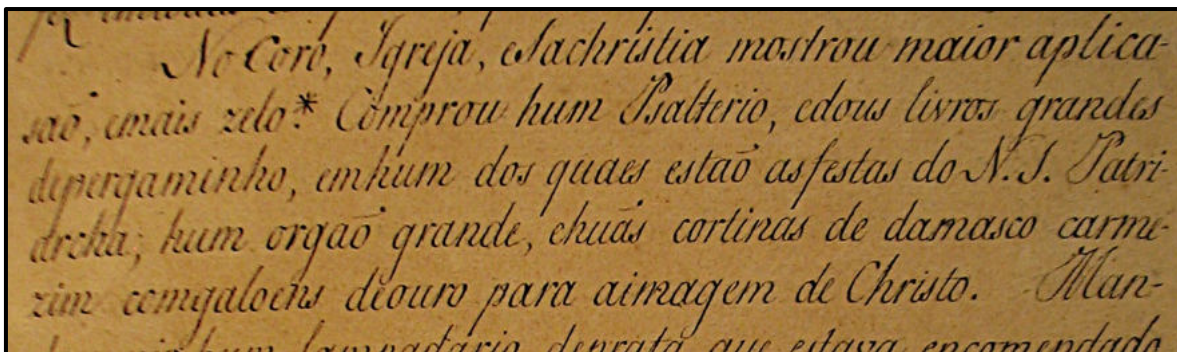 No Coro, Igreja, eSachristia mostrou maior aplica-
saõ, emais zelo.* Comprou hum Psalterio, edous livros grandes
depergaminho, emhum dos quaes estaõ asfestas do N. S. Patri-
archa; hum orgaõ grande, ehuãs cortinas de damasco carme-
zim comgaloens deouro para aimagem de Christo. Man-
hum lampadario deprata, que estava encomendado